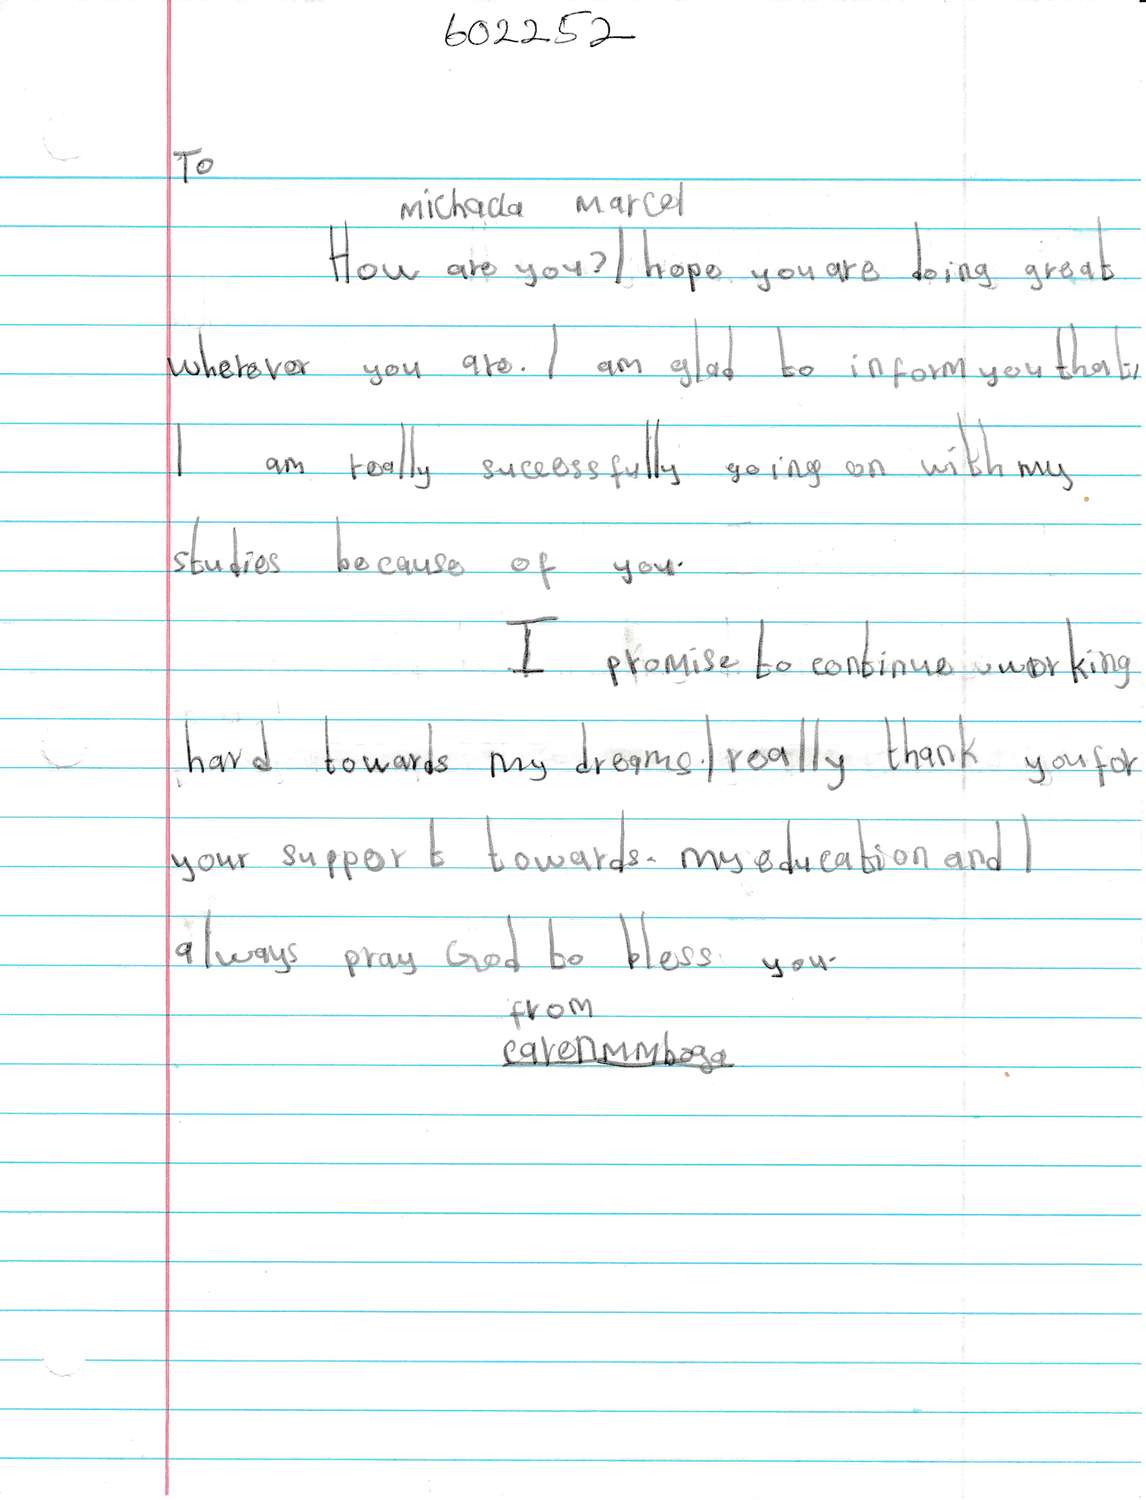 602252
To
michada marcel
How are you? I hope you are doing great
wherever you are. I am glad to inform you that,
I am really sucessfully going on with my
studies because of you.
I promise to continue working
hard towards my dreams. I really thank you for
your support towards. my education and I
always pray God to bless you.
from